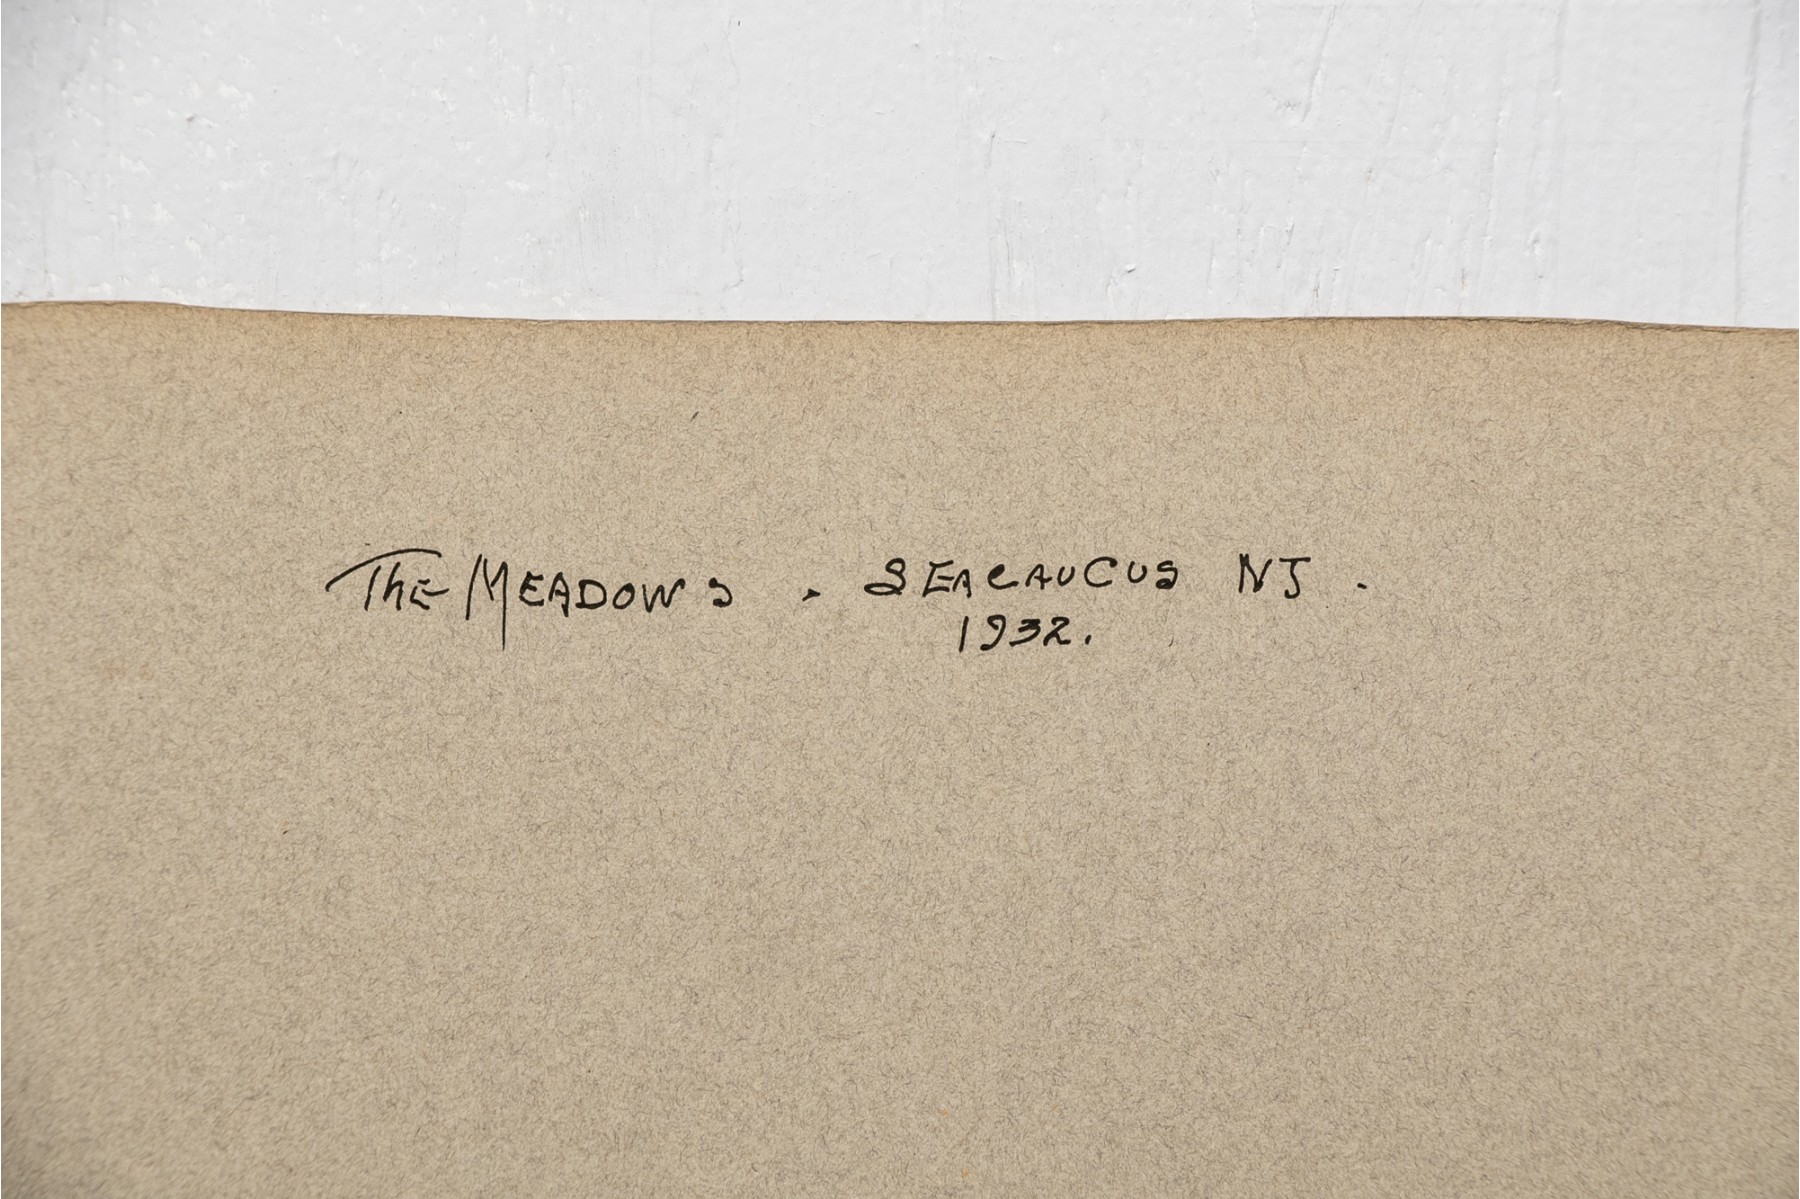 The MEADOWS . SEACAUCUS NJ .
1932.